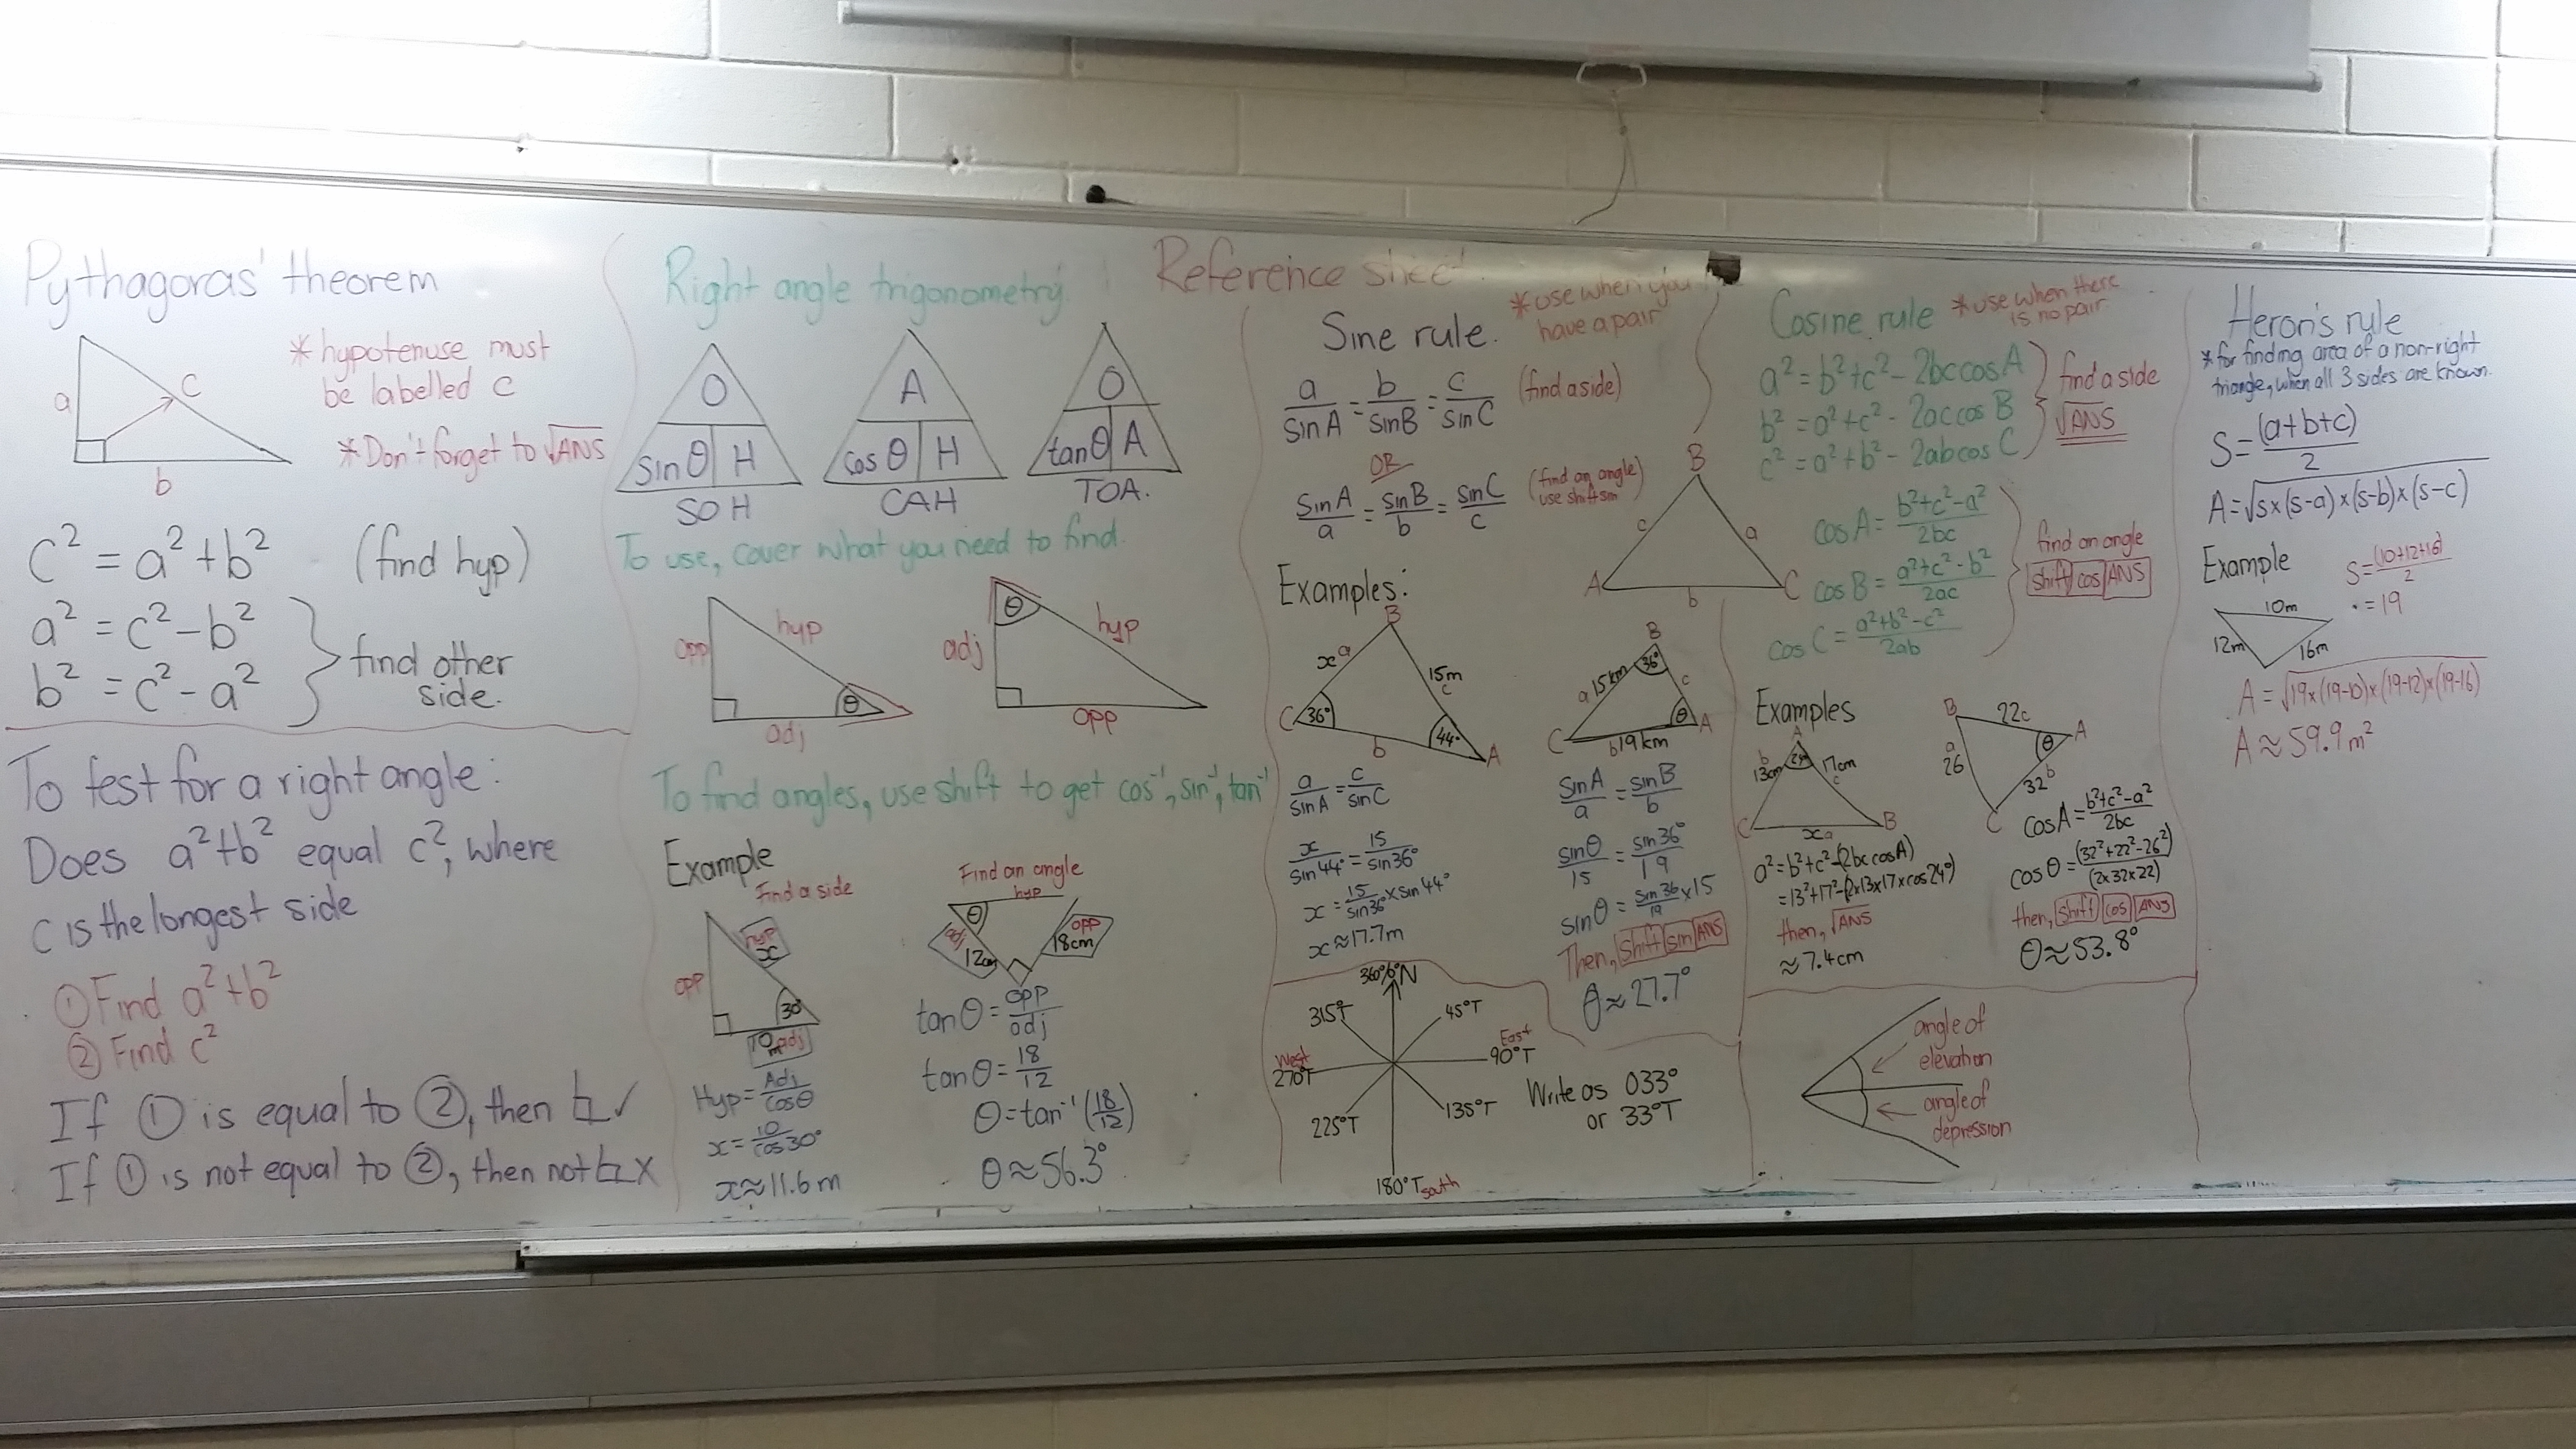 Reference sheet
Pythagoras' theorem
* hypotenuse must
be labelled c
* Don't forget to √ANS
a
c
b
c² = a² + b² (find hyp)
a² = c² - b²
b² = c² - a²
find other
side.
To test for a right angle:
Does a² + b² equal c², where
c is the longest side
① Find a² + b²
② Find c²
If ① is equal to ②, then ✓
If ① is not equal to ②, then not X
Right angle trigonometry
O
sinθ H
SOH
A
cosθ H
CAH
O
tanθ A
TOA.
To use, cover what you need to find.
opp
hyp
θ
adj
θ
adj
hyp
opp
To find angles, use shift to get cos⁻¹, sin⁻¹, tan⁻¹
Example
Find a side
hyp
x
opp
30°
10m adj
Hyp = Adj/cosθ
x = 10/cos30°
x ≈ 11.6m
Find an angle
hyp
θ
adj
12cm
opp
18cm
tanθ = opp/adj
tanθ = 18/12
θ = tan⁻¹(18/12)
θ ≈ 56.3°
Sine rule.
* use when you
have a pair
a/sinA = b/sinB = c/sinC (find a side)
OR
sinA/a = sinB/b = sinC/c (find an angle)
use shift sin
B
c
a
A
b
C
Examples:
B
x a
15m
c
C 36°
b
44° A
a/sinA = c/sinC
x/sin44° = 15/sin36°
x = 15/sin36° × sin44°
x ≈ 17.7m
B
36°
a 15km
c
θ A
C
b 19km
sinA/a = sinB/b
sinθ/15 = sin36°/19
sinθ = sin36/19 × 15
Then, shift sin ANS
θ ≈ 27.7°
N
45°T
East
90°T
135°T
180°T south
225°T
West
270°T
315°T
Write as 033°
or 33°T
Cosine rule * use when there
is no pair
a² = b² + c² - 2bccosA
b² = a² + c² - 2accosB
c² = a² + b² - 2abcosC
find a side
√ANS
cosA = b²+c²-a²/2bc
cosB = a²+c²-b²/2ac
cosC = a²+b²-c²/2ab
find an angle
shift cos ANS
Examples
A
b
13cm
17cm
c
C
x a
B
a² = b² + c² - (2bccosA)
= 13² + 17² - (2×13×17×cos24°)
then, √ANS
≈ 7.4cm
B
22c
A
θ
a
26
32 b
C
cosA = b²+c²-a²/2bc
cosθ = (32²+22²-26²)/(2×32×22)
then, shift cos ANS
θ ≈ 53.8°
angle of
elevation
angle of
depression
Heron's rule
* for finding area of a non-right
triangle, when all 3 sides are known.
S = (a+b+c)/2
A = √s×(s-a)×(s-b)×(s-c)
Example
10m
12m
16m
S = (10+12+16)/2
= 19
A = √19×(19-10)×(19-12)×(19-16)
A ≈ 59.9m²